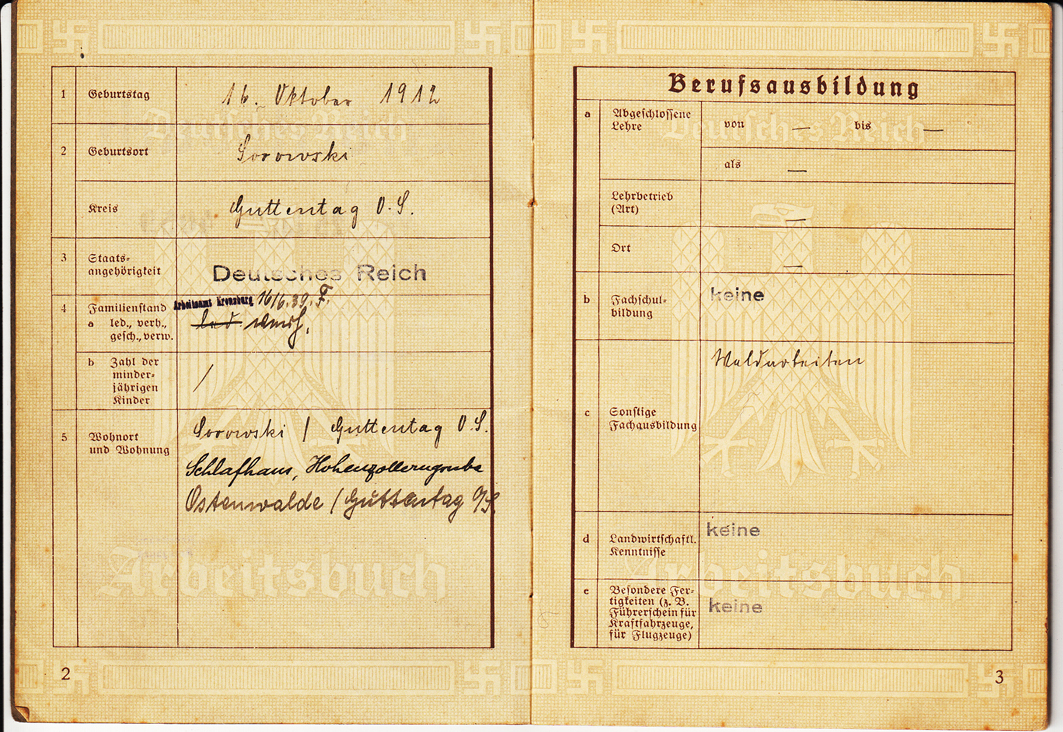 1 Geburtstag 16. Oktober 1912
2 Geburtsort Sorowski
Kreis Guttentag O.S.
3 Staats-
angehörigkeit Deutsches Reich
Arbeitsamt Kreuzburg 16/6.39. F.
4 Familienstand
a led., verh., led. verh.
gesch., verw.
b Zahl der
minder-
jährigen
Kinder /
5 Wohnort
und Wohnung
Sorowski / Guttentag O.S.
Schlafhaus, Hohenzollerngrube
Ostenwalde / Guttentag O/S.
Deutsches Reich
Arbeitsbuch
2
Berufsausbildung
a Abgeschlossene
Lehre
von — bis —
als —
Lehrbetrieb
(Art) —
Ort —
b Fachschul-
bildung
keine
c Sonstige
Fachausbildung
Waldarbeiten
d Landwirtschaftl.
Kenntnisse
keine
e Besondere Fer-
tigkeiten (z. B.
Führerschein für
Kraftfahrzeuge,
für Flugzeuge)
keine
Deutsches Reich
Arbeitsbuch
3